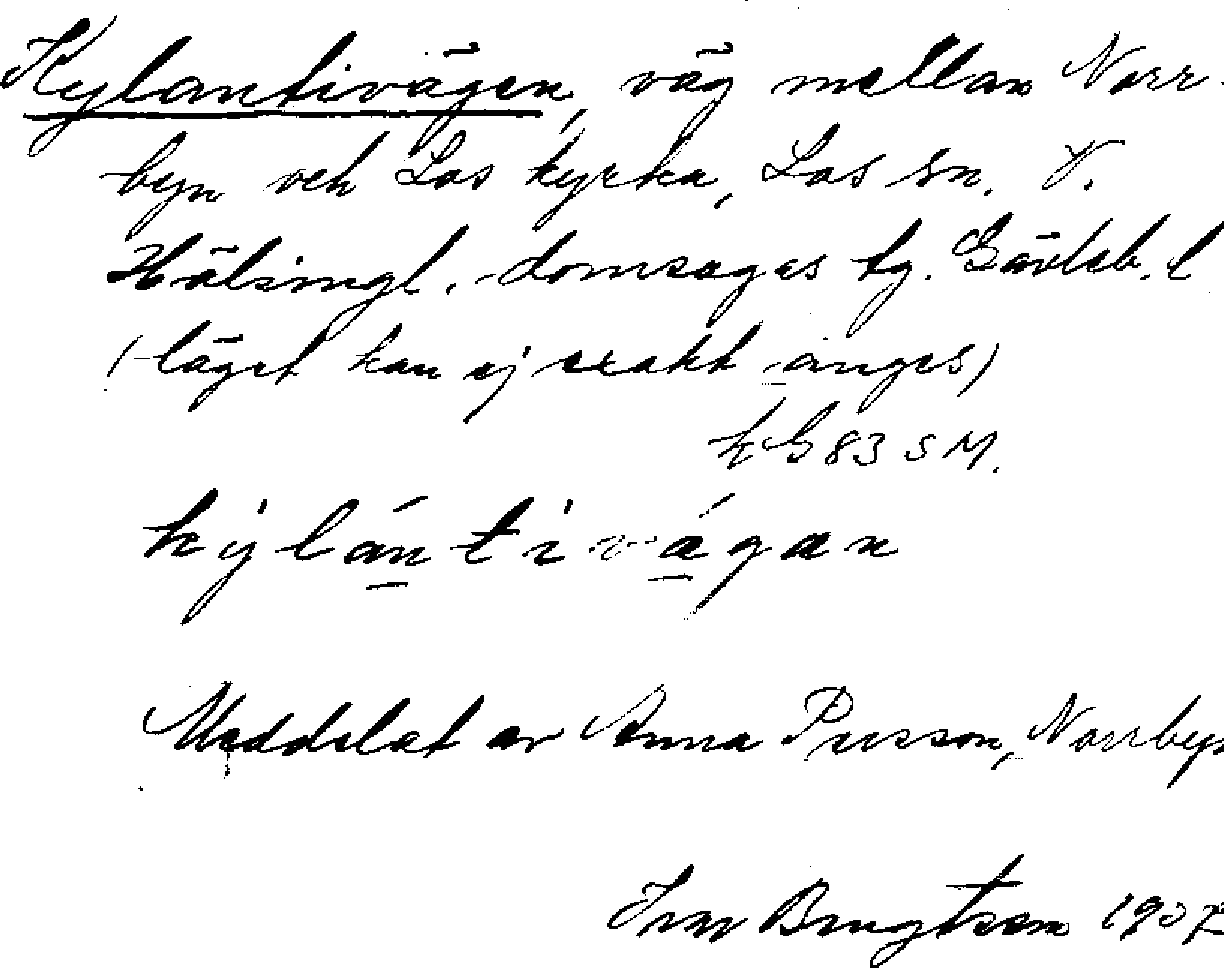 Kylantivägen, väg mellan Norr-
byn och Los kyrka, Los sn. V.
Hälsingl. domsagas tg. Gävleb. l
(läget kan ej exakt anges)
83 SM.
Meddelat av Anna Persson, Norrbyn
Bengtsson